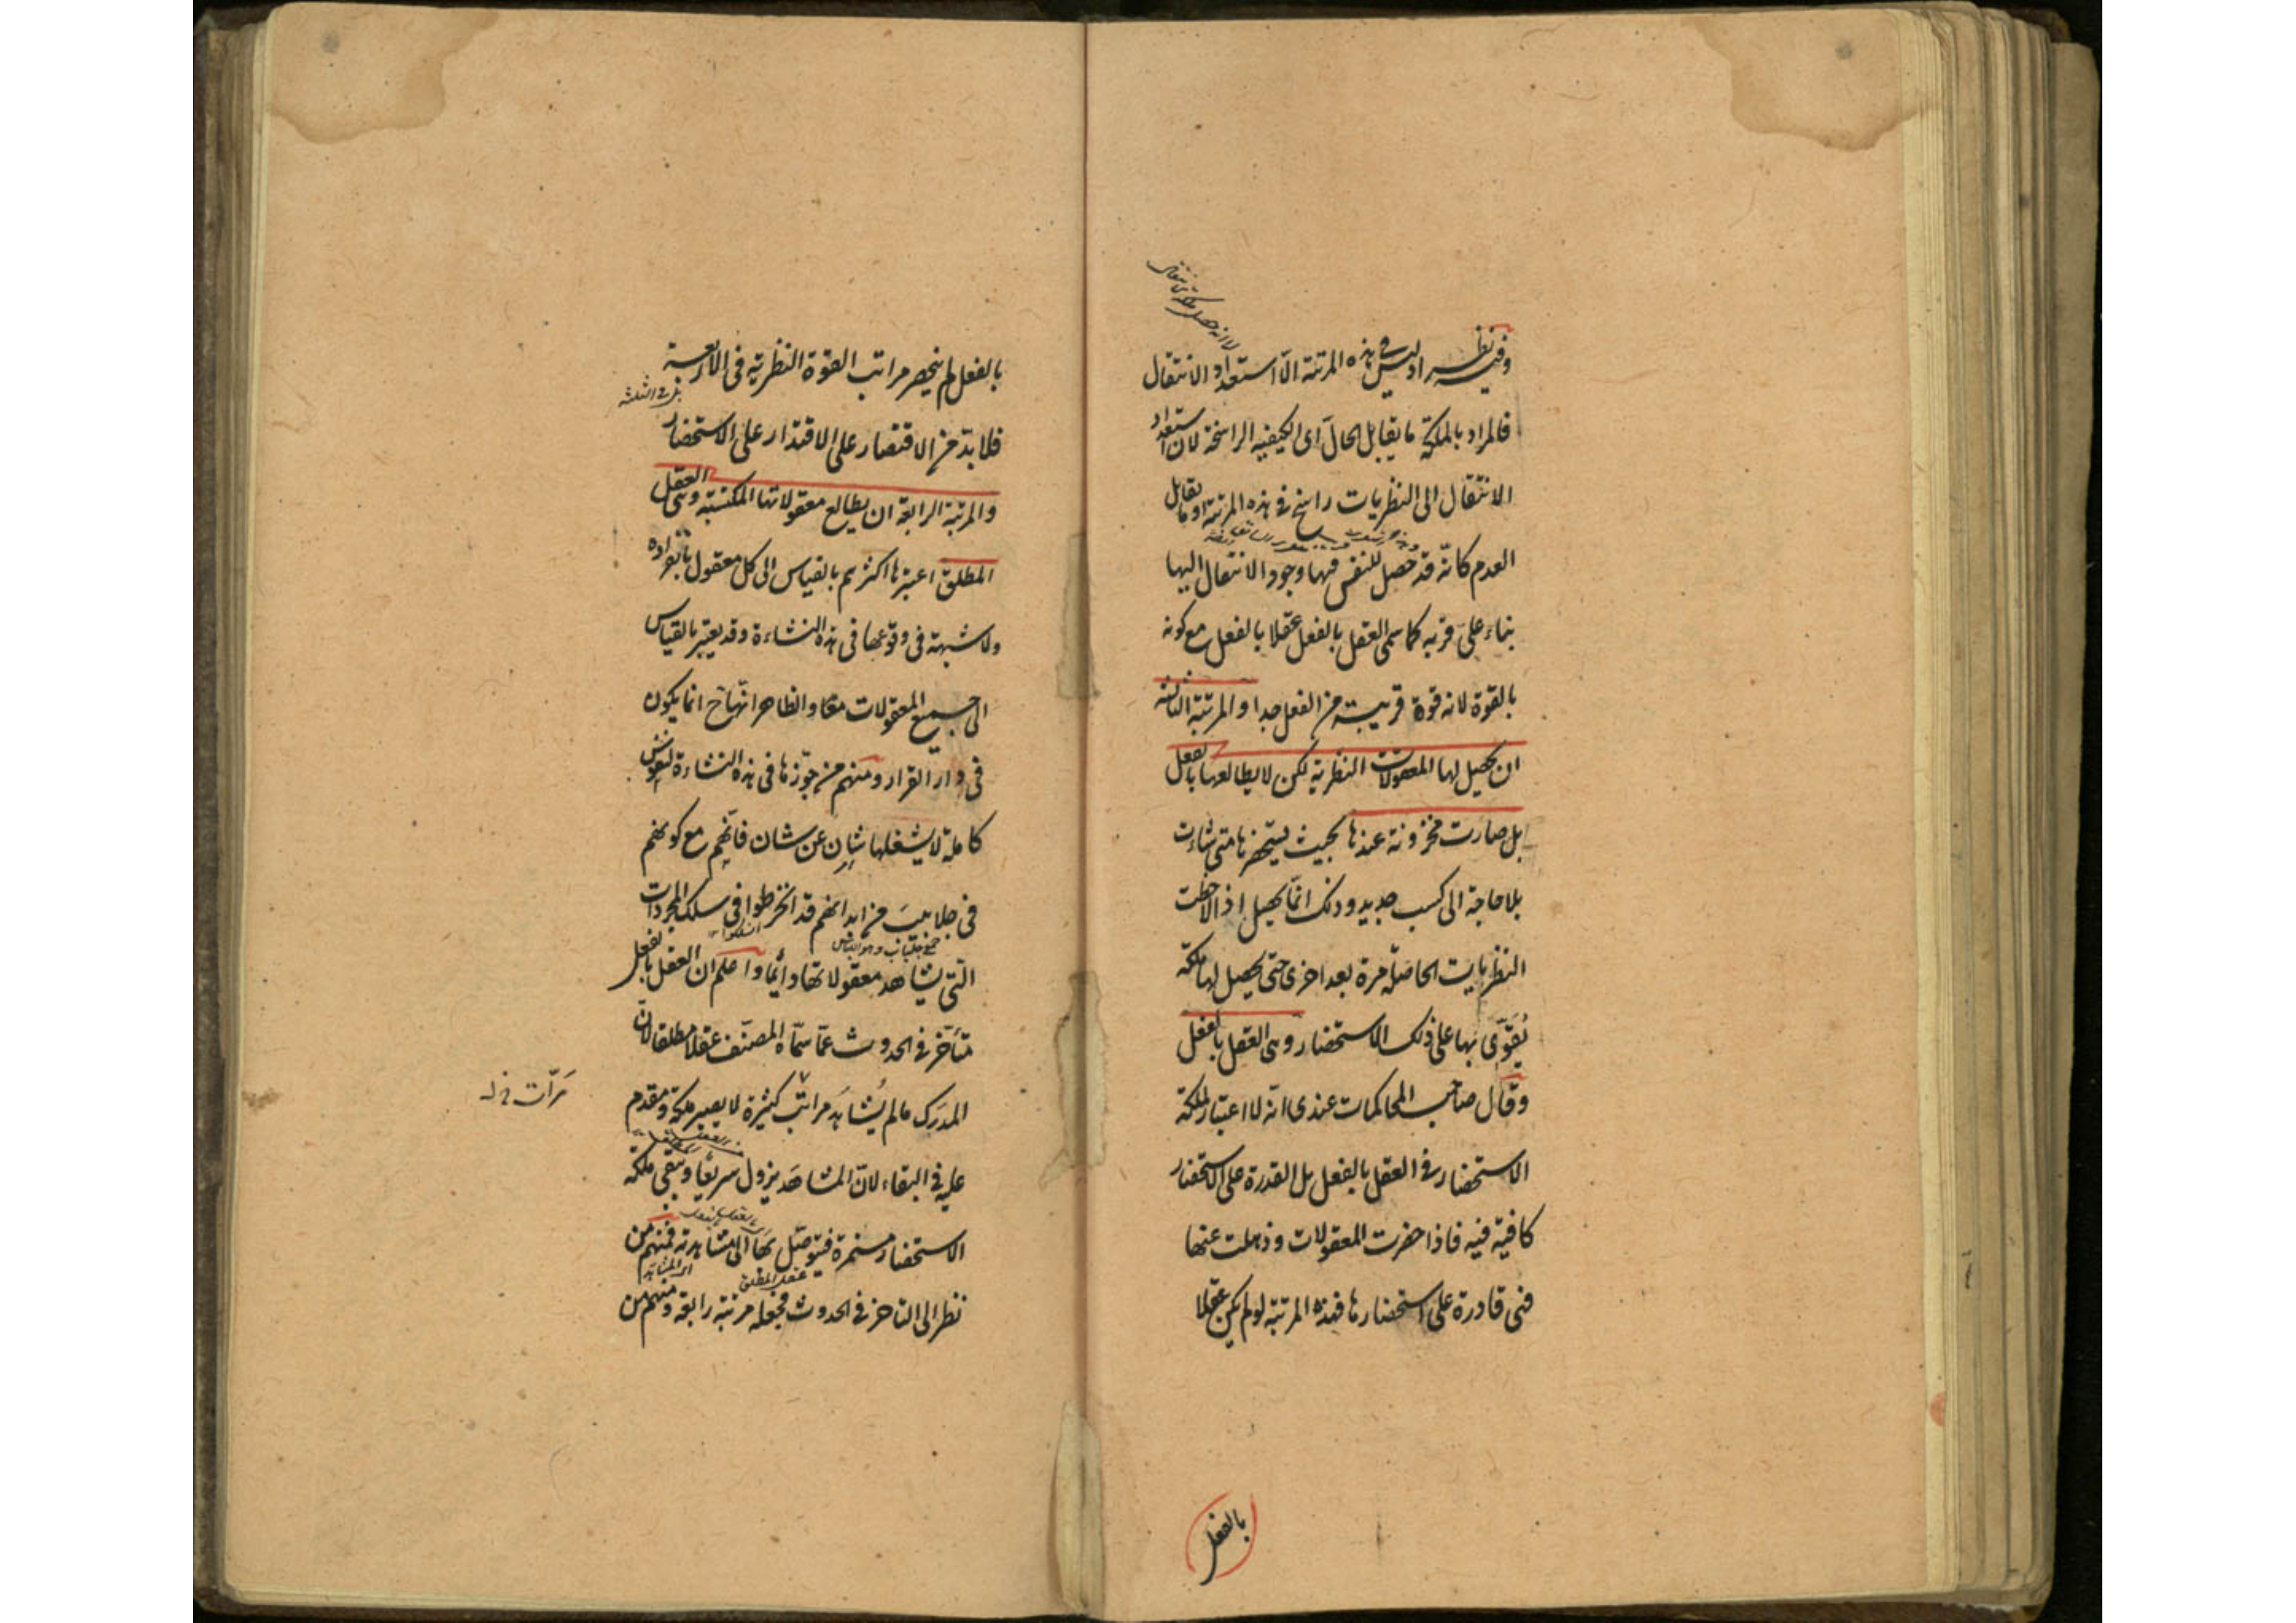 وفيه نظر اذ ليس في هذه المرتبة الّا استعداد الانتقال
فالمراد بالملكة ما يقابل الحال اى الكيفية الراسخة لان استعداد
الانتقال الى النظريات راسخ فى هذه المرتبة او ما يقابل
العدم كانّه قد حصل للنفس فيها وجود الانتقال اليها
بناء على قربه كما سمى العقل بالفعل عقلا بالفعل مع كونه
بالقوة لانه قوة قريبة من الفعل جدا والمرتبة الثالثة
ان يحصل لها المعقولات النظرية لكن لا يطالعها بالفعل
بل صارت مخزونة عندها بحيث يستحضرها متى شاءت
بلا حاجة الى كسب جديد وذلك انّما يحصل اذا لاحظت
النظريات الحاصلة مرة بعد اخرى حتى يحصل لها ملكة
يُقوّى بها على ذلك الاستحضار وهى العقل بالفعل
وقال صاحب المحاكمات عندى انه لا اعتبار لملكة
الاستحضار فى العقل بالفعل بل القدرة على الاستحضار
كافية فيه فاذا حضرت المعقولات وذهلت عنها
فهى قادرة على استحضارها فهذه المرتبة لو لم يكن عقلا
بالفعل
بالفعل لم ينحصر مراتب القوة النظرية فى الاربعة
فلا بدّ من الاقتصار على الاقتدار على الاستحضار
والمرتبة الرابعة ان يطالع معقولاتها المكتسبة وهى العقل
المطلق اعتبرها اكثرهم بالقياس الى كل معقول بانفراده
ولا شبهة فى وقوعها فى هذه النشاءة وقد يعتبر بالقياس
الى جميع المعقولات معًا والظاهر انّها ح انما يكون
فى دار القرار ومنهم من جوّزها فى هذه النشاءة لنفوس
كاملة لا يشغلها شان عن شان فانّهم مع كونهم
فى جلابيب من ابدانهم قد انخرطوا فى سلك المجردات
التى يشاهد معقولاتها دائما واعلم ان العقل بالفعل
متأخر فى الحدوث عمّا سمّاه المصنّف عقلا مطلقا لانّ
المدرَك ما لم يُشاهَد مراتب كثيرة لا يصير ملكة ومقدم
مرّات خ ل
عليه فى البقاء لانّ المشاهدَ يزول سريعًا ويبقى ملكة
الاستحضار مستمرة فيتوصّل بها الى مشاهدته فمنهم من
نظر الى التاخر فى الحدوث فجعله مرتبة رابعة ومنهم من